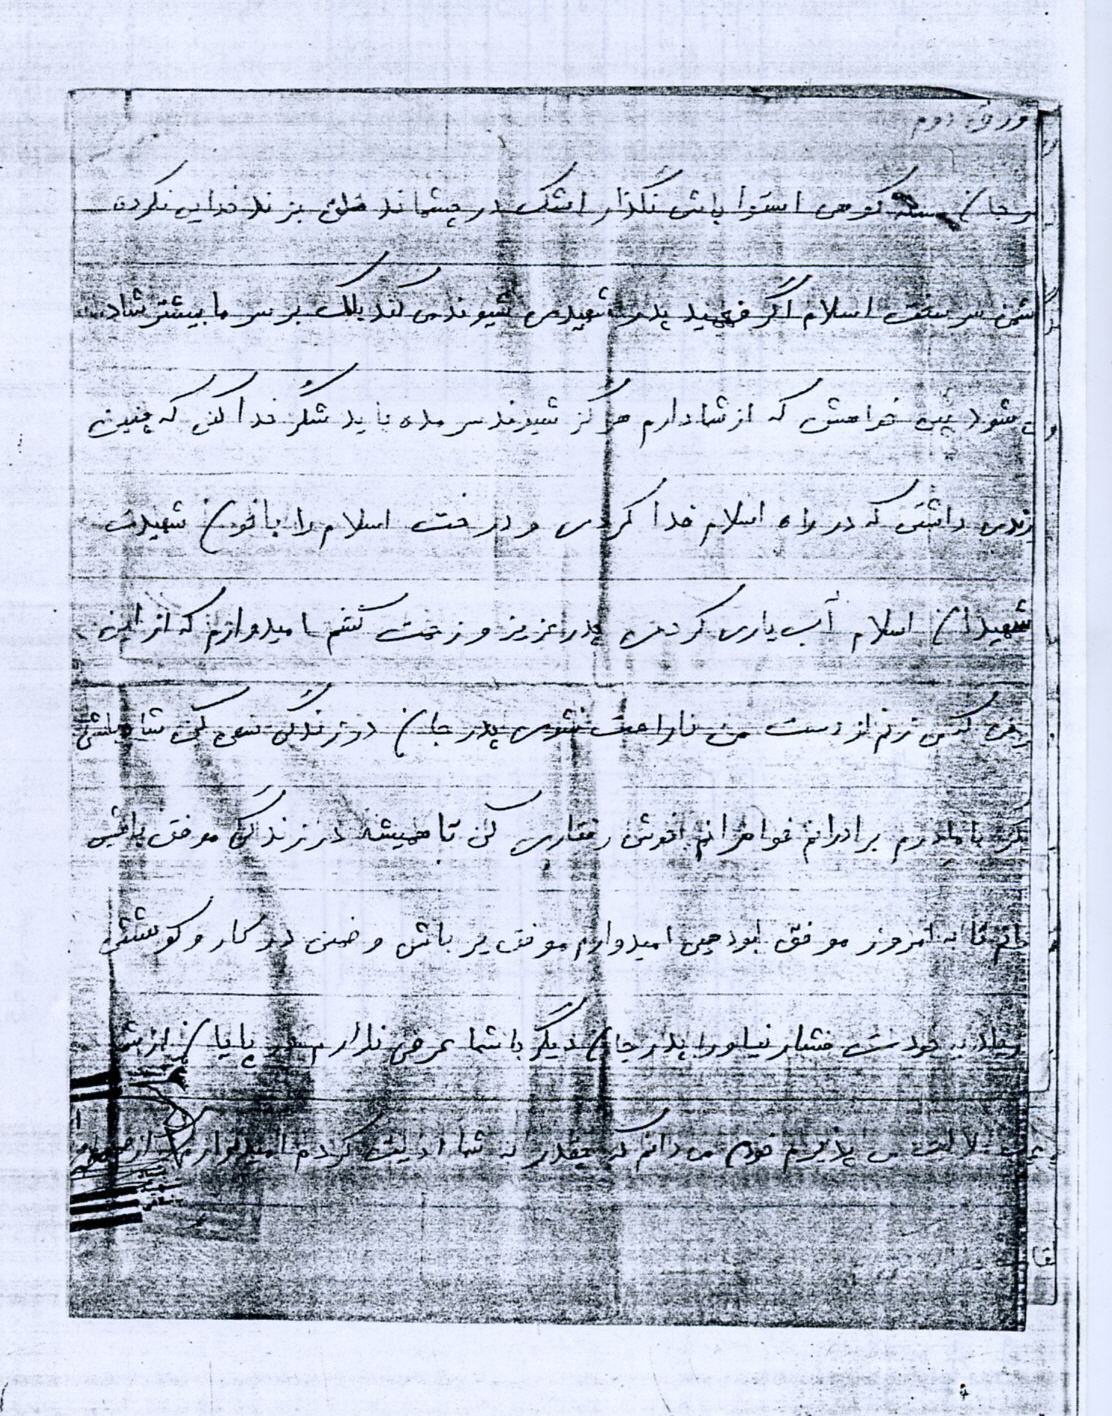 ورق دوم
کوهی استوا باشی نگذار اشک در چشماند بزند خدایی نکرده
سر سخت اسلام اگر فهمید پدر شهیدی شیوند می کند بر سر ما بیشتر شاد
شود پس خواهش که از شما دارم هرگز شیوند سر مده باید شکر خدا کن که چنین
داشتی که در راه اسلام فدا کردی و درخت اسلام را با خون شهیدت
شهیدان اسلام آب یاری کردی پدر عزیز و زحمت کشم امیدوارم که از این
از دست من ناراحت نشوی پدر جان در زندگی سعی کن شاد باشی
با مادرم برادرانم خواهرانم خوش رفتاری کن تا همیشه در زندگی موفق باشی
تا به امروز موفق بود امیدوارم موفق تر باش و ضمن در کار و کوشش
به خودت فشار نیاور پدر جان دیگر با شما عرضی ندارم در پایان از شما
می پذیرم چون می دانم که چقدر به شما اذیت کردم امیدوارم که از